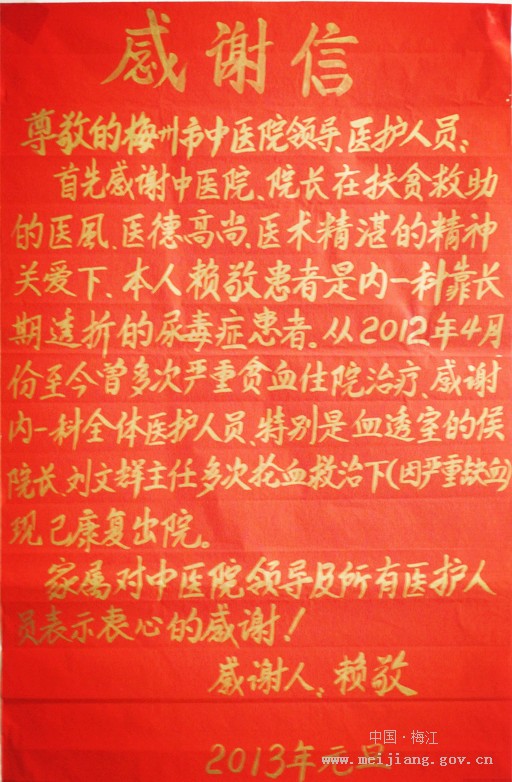 感谢信
尊敬的梅州市中医院领导、医护人员:
首先感谢中医院、院长在扶贫救助
的医風、医德高尚、医术精湛的精神
关爱下、本人赖敬患者是内一科靠长
期透折的尿毒症患者。从2012年4月
份至今曾多次严重贫血住院治疗、感谢
内一科全体医护人员、特别是血透室的侯
院长、刘文群主任多次抢血救治下(因严重缺血)
现已康复出院。
家属对中医院领导及所有医护人
员表示衷心的感谢!
感谢人:赖敬
2013年元旦
中国·梅江
www.meijiang.gov.cn